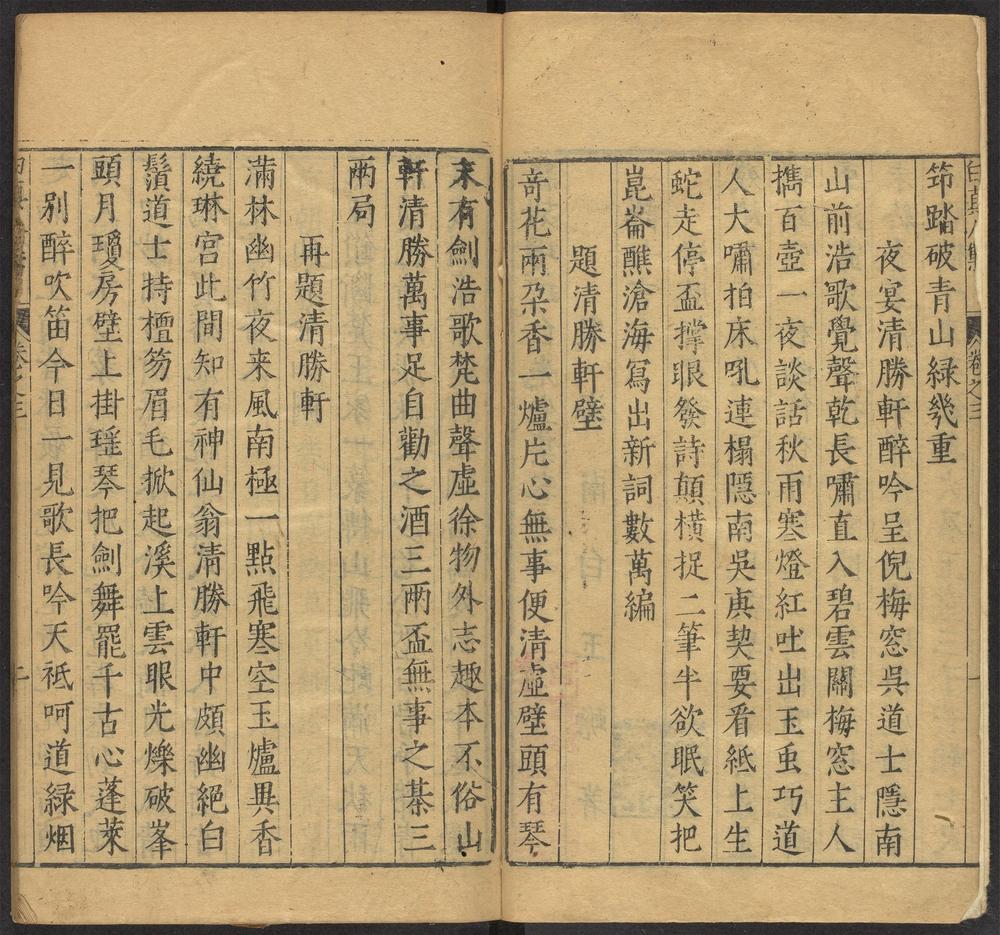 筇踏破青山緑幾重
夜宴清勝軒醉吟呈倪梅窓吳道士隱南
山前浩歌覺聲乾長嘯直入碧雲關梅窓主人
擕百壺一夜談話秋雨寒燈紅吐出玉虫巧道
人大嘯拍床吼連榻隱南吳庚契要看紙上生
蛇走停盃撑眼發詩顛橫捉二筆半欲眠笑把
崑崙醮滄海寫出新詞數萬編
題清勝軒壁
竒花兩朶香一爐片心無事便清虛壁頭有琴
末有劍浩歌梵曲聲虛徐物外志趣本不俗山
軒清勝萬事足自勸之酒三兩盃無事之棊三
兩局
再題清勝軒
滿林幽竹夜来風南極一點飛寒空玉爐㒷香
繞琳宮此間知有神仙翁清勝軒中頗幽絕白
鬚道士持檀笏眉毛掀起溪上雲眼光爍破峯
頭月瓊房壁上掛瑶琴把劍舞罷千古心蓬萊
一别醉吹笛今日一見歌長吟天祗呵道緑烟
卷之三
卷之三